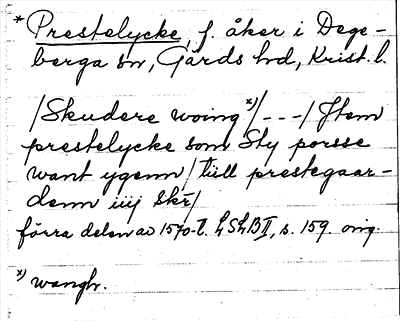 * Prestelycke, f. åker i Dege-
berga sn, Gärds hd, Krist. l.
/Skudere woing x)/ - - - / Jtem
prestelycke som Sty porsse
want ygenn / tiill prestegaar-
denn iiij skr/
förra delen av 1570-t. LSLB II, s. 159. orig.
x) wangh.